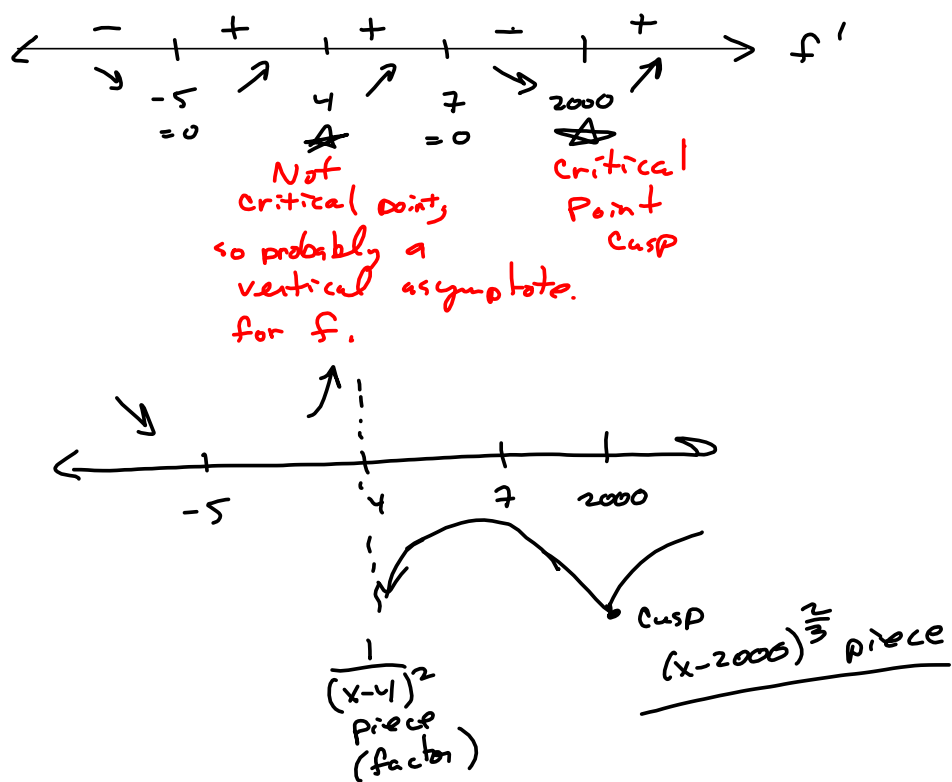 - + + - + f'
-5 4 7 2000
=0 =0
Not
critical point,
so probably a
vertical asymptote.
for f.
Critical
Point
Cusp
-5 4 7 2000
Cusp
(x-2000)^{2/3} piece
1/(x-4)^2
piece
(factor)